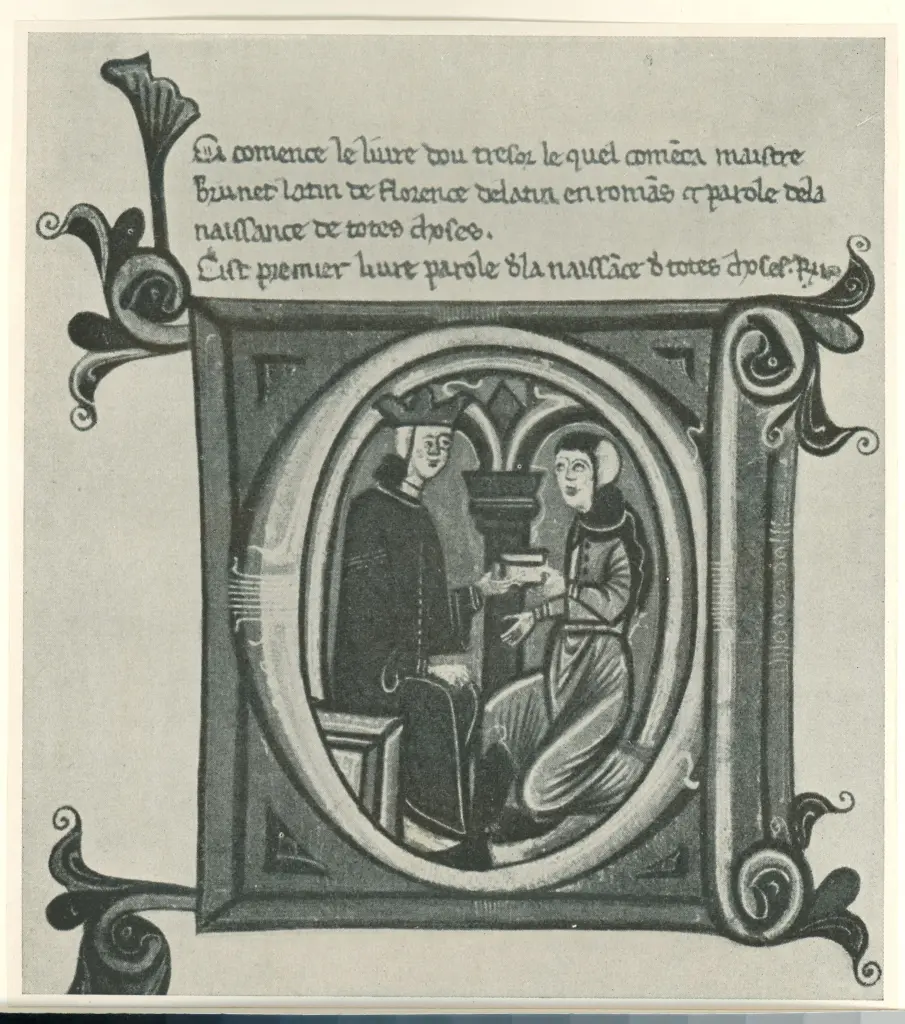 Ci comence le liure dou tresor le quel comēca maistre
Brunet latin de florence de latin en romās et parole de la
naissance de totes choses.
Cist premier liure parole d la naissāce d totes choses.